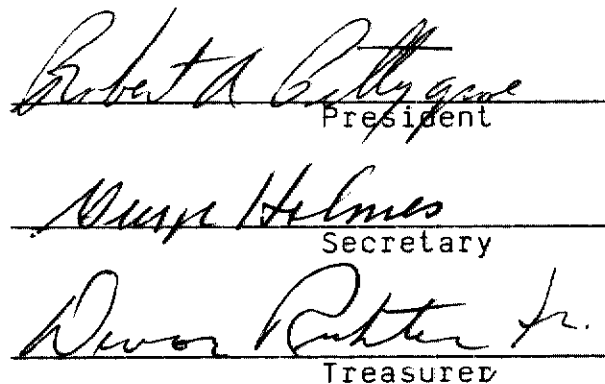 Robert A Pettygrove
President
George Holmes
Secretary
Richter Jr.
Treasurer